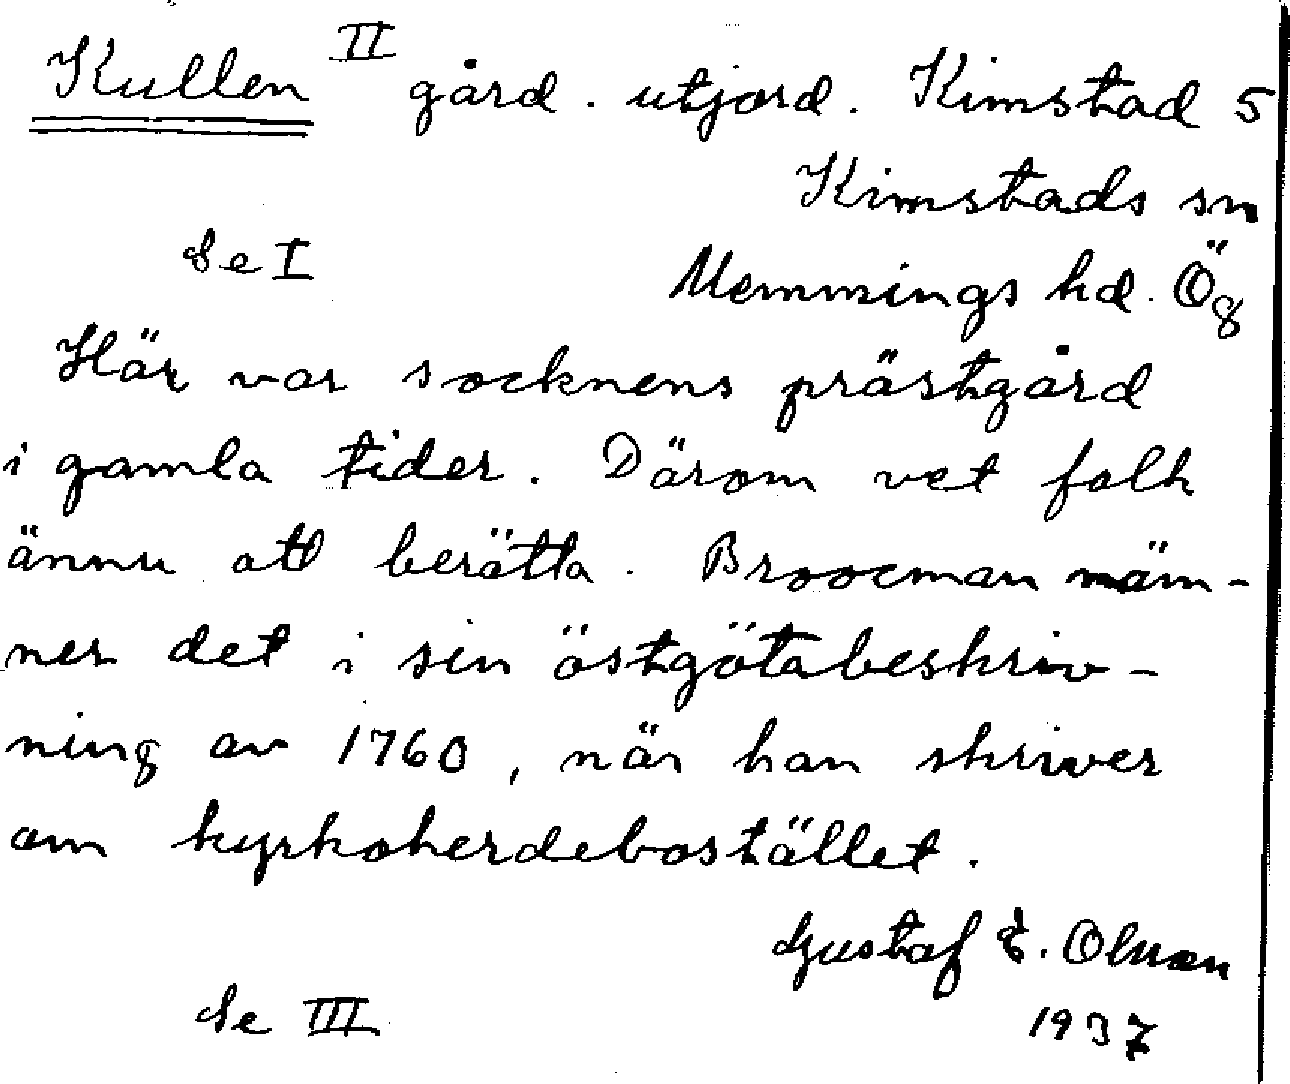 Kullen II gård. utjord. Kimstad 5
Kimstads sn
Se I Memmings hd. Ög
Här var socknens prästgård
i gamla tider. Därom vet folk
ännu att berätta. Broocman näm-
ner det i sin östgötabeskriv-
ning av 1760, när han skriver
om kyrkoherdebostället.
Gustaf E. Olsson
Se III 1937